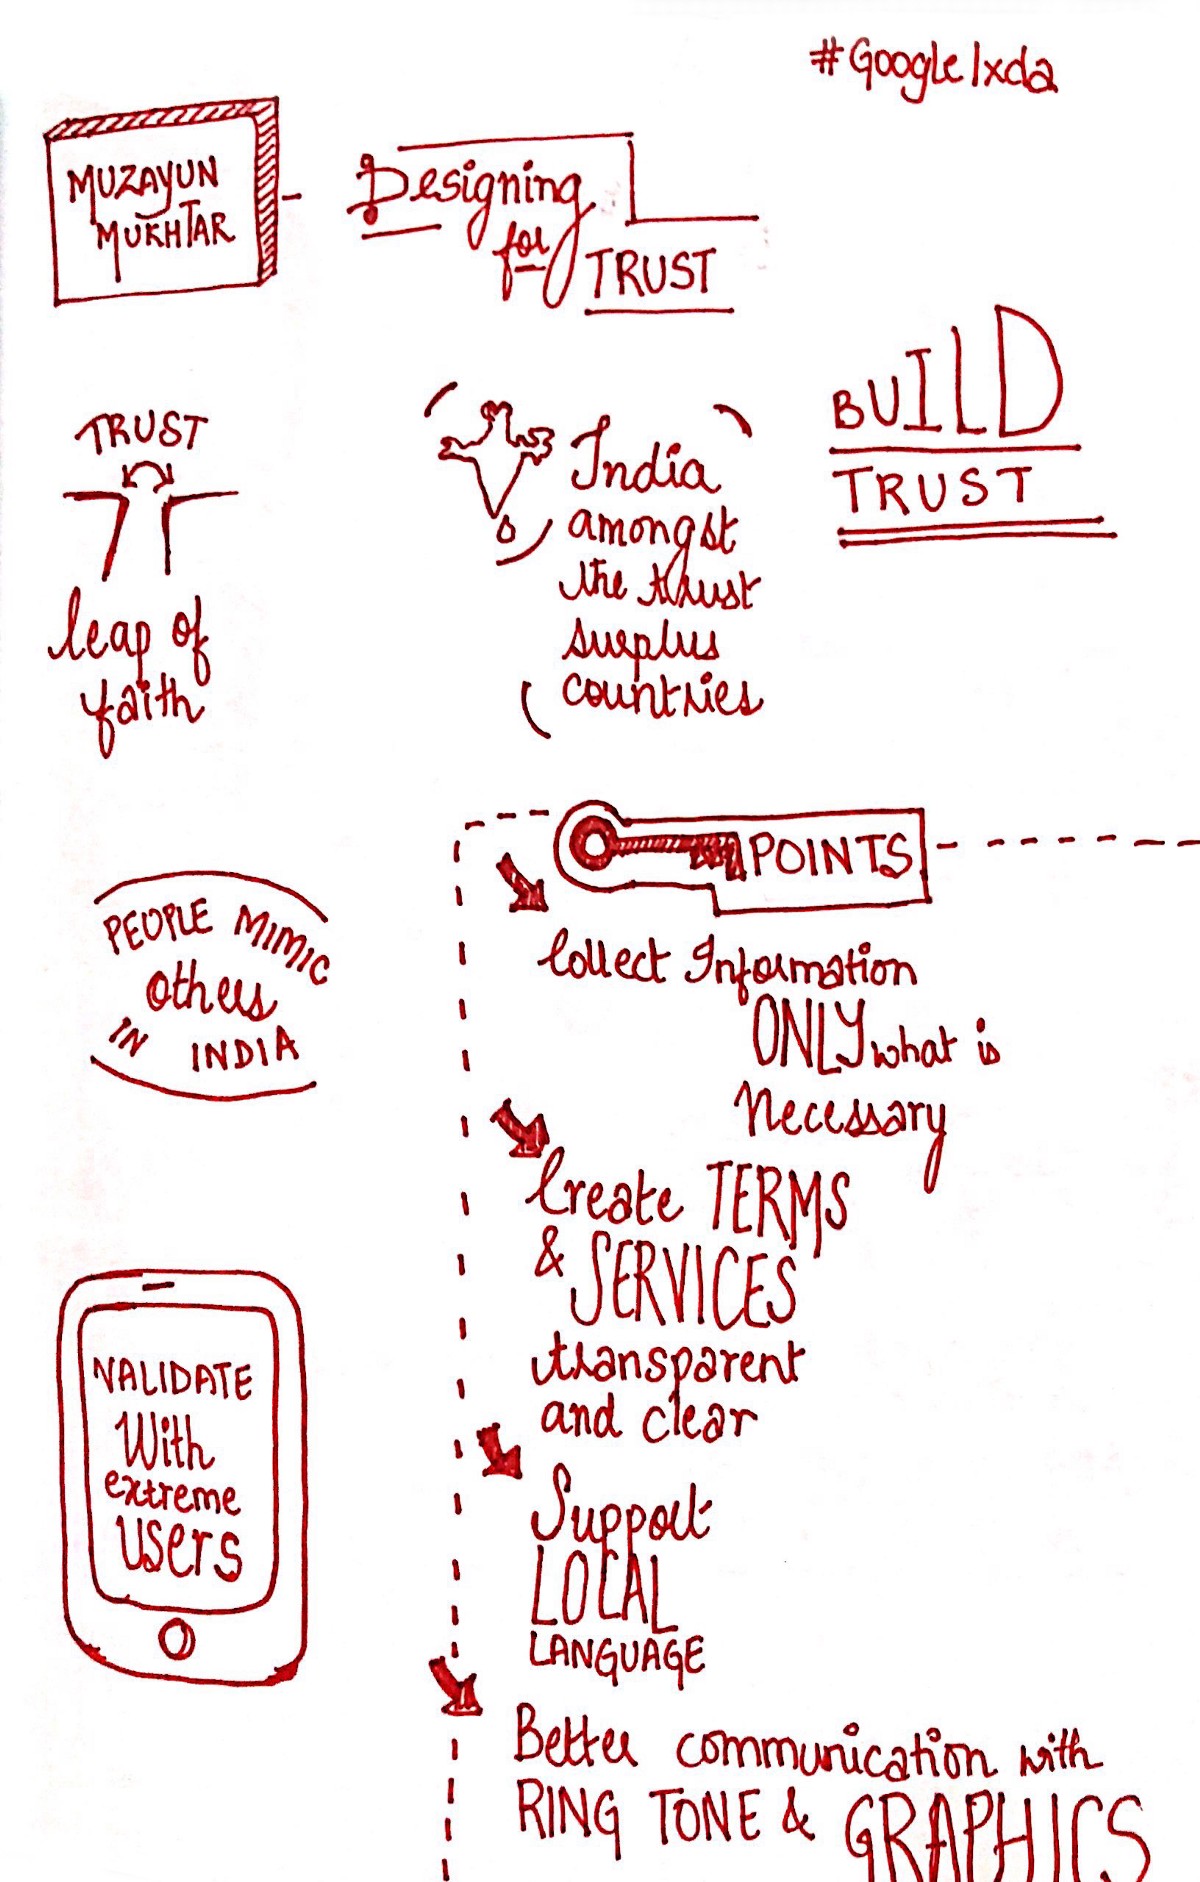 #GoogleIxda
MUZAYUN
MUKHTAR
-
Designing
for
TRUST
TRUST
leap of
faith
India
amongst
the trust
surplus
countries
BUILD
TRUST
PEOPLE MIMIC
others
IN INDIA
VALIDATE
With
extreme
users
POINTS
Collect Information
ONLY what is
Necessary
Create TERMS
& SERVICES
transparent
and clear
Support
LOCAL
LANGUAGE
Better communication with
RING TONE & GRAPHICS